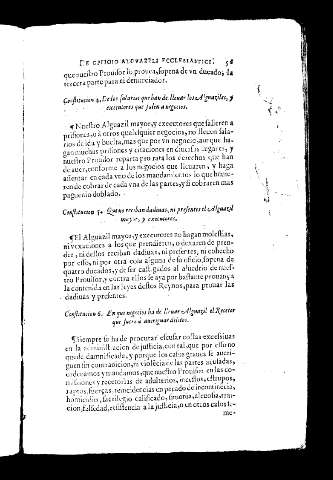 DE OFICIO ALGVAZILS ECCLESIASTICI. 56
que nuestro Prouisor lo prouea, so pena de vn ducado, la
tercera parte para el denunciador.
Constitucion 4. De los salarios que han de lleuar los Alguaziles, y
executores que salen a negocios.
¶ Nuestro Alguazil mayor, y executores que salieren a
prisiones, o a otros qualesquier negocios, no lleuen sala-
rios de ida y buelta, mas que por vn negocio, aunque ha-
gan muchas prisiones y citaciones en diuersos lugares, y
nuestro Prouisor reparta pro rata los derechos que han
de auer, conforme a los negocios que lleuaren, y haga
assentar en cada vno de los mandamientos lo que huuie-
ren de cobrar de cada vna de las partes, y si cobraren mas
paguenlo doblado.
Constitucion 5. Que no reciban dadiuas, ni presentes el Alguazil
mayor, y executores.
¶ El Alguazil mayor, y executores no hagan molestias,
ni vexaciones a los que prendieren, o dexaren de pren-
der, ni dellos reciban dadiuas, ni presentes, ni cohecho
por esso, ni por otra cosa alguna de su oficio, so pena de
quatro ducados, y de ser castigados al aluedrio de nues-
tro Prouisor, y contra ellos se aya por bastante prouança
la contenida en las leyes destos Reynos, para prouar las
dadiuas y presentes.
Constitucion 6. En que negocios ha de lleuar Alguazil el Receptor
que fuere a aueriguar delitos.
¶ Siempre se ha de procurar escusar costas excessiuas
en la administracion de justicia, con tal, que por esso no
quede damnificada, y porque los casos graues se aueri-
guen sin contradicion, ni violēcia de las partes acusadas,
ordenamos y mandamos, que nuestro Prouisor en las co-
missiones y recetorias de adulterios, incestos, estupros,
raptos, fuerças, reincidencias en pecado de incontinencia,
homicidio, sacrilegio calificado, simonia,
cion, falsedad, resistencia a la justicia, o en otros casos se-
me-